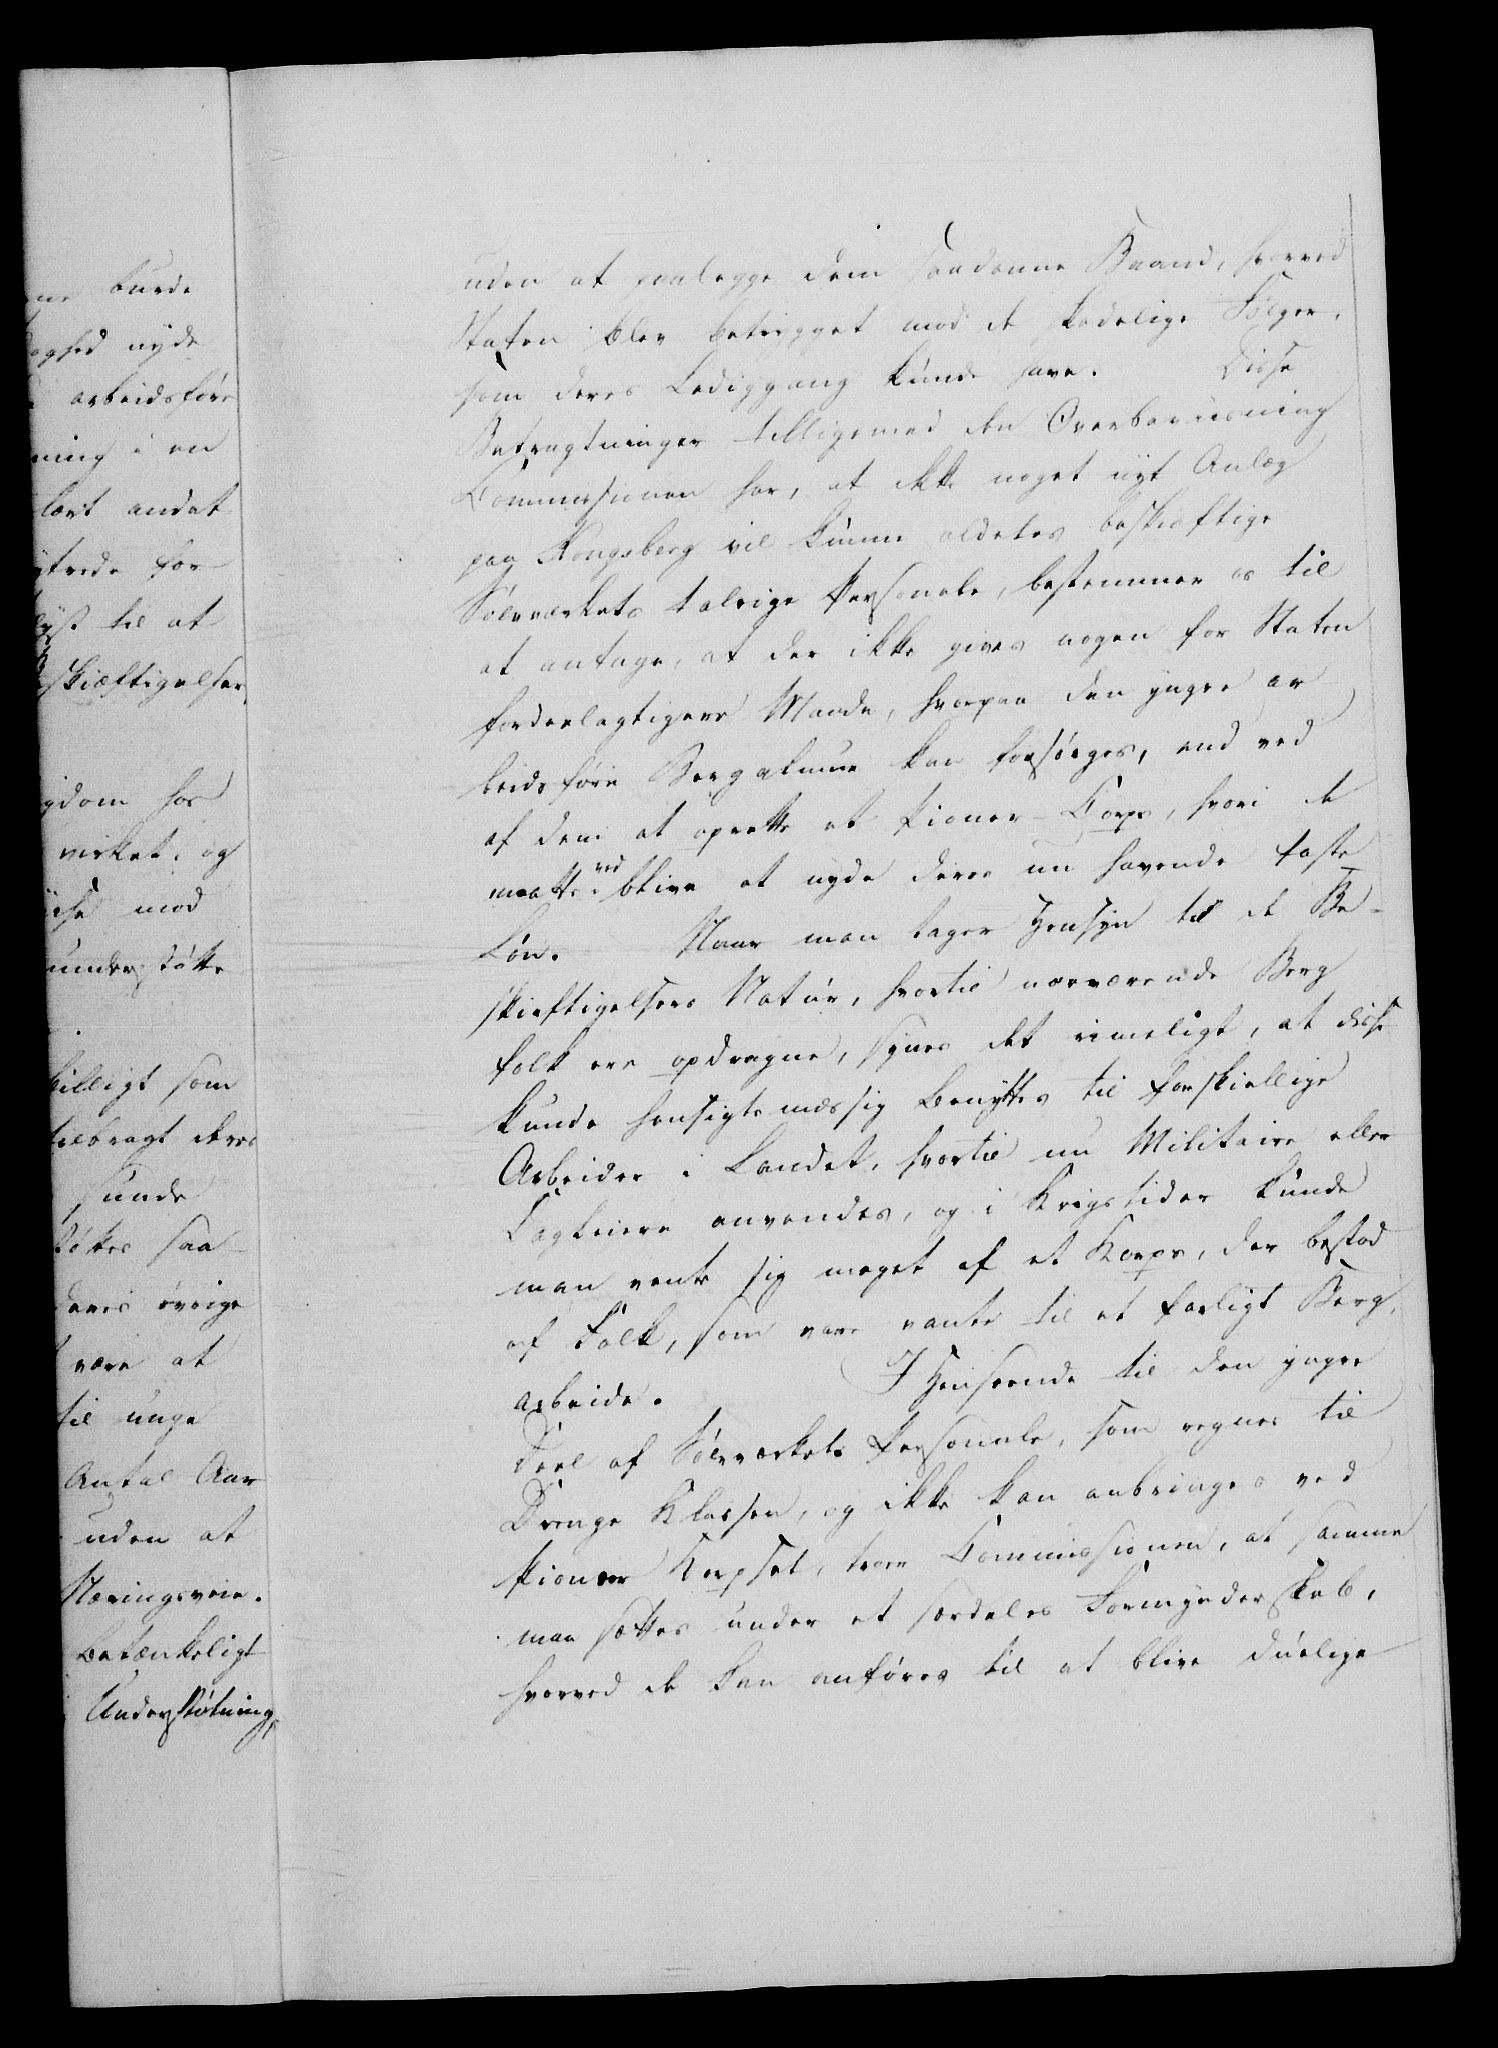 uden at paalegge dem saadanne Baand, hvorved
Staten blev betrygget mod de skadelige Følger,
som deres Lediggang kunde have. Disse
Betragtninger tilligemed den Overbeviisning
Commissionen har, at ikke noget nyt Anlæg
paa Kongsberg vil kunne aldeles beskiæftige
Sølvværkets talrige Personale, bestemmer os til
at antage, at der ikke gives nogen for Staten
fordeelagtigere Maade, hvorpaa den yngre ar
beidsføre Bergalmue kan forsørges, end ved
af dem at oprette et Pioner-Corps, hvori de
maatte vedblive at nyde deres nu havende faste
Løn. Naar man tager Hensyn til de Be-
skieftigelsers Natur, hvortil nærværende Berg
folk ere opdragne, synes det rimeligt, at disse
kunde hensigtsmæssig benyttes til forskiellige
Arbeider i Landet, hvortil nu Militaire eller
Dagleiere anvendes, og i Krigstider kunde
man vente sig meget af et Korps, der bestod
af Folk, som vare vante til et farligt Berg,
arbeide. I Henseende til den yngre
Deel af Sølvværkets Personale, som regnes til
Drenge Klassen, og ikke kan anbringes ved
Pioneer Korpset, troer Commissionen, at samme
maa sættes under et særdeles Formynderskab,
hvorved de kan anføres til at blive duelige
burde
nyde
arbeidsføre
ning i en
lært andet
for
til at
skiæftigelser,
gdom hos
virket, og
mod
understøtte
billigt som
tilbragt deres
sunde
saa
deres øvrige
være at
til unge
Antal Aar
uden at
Næringsveie.
betænkeligt
Understøtning,